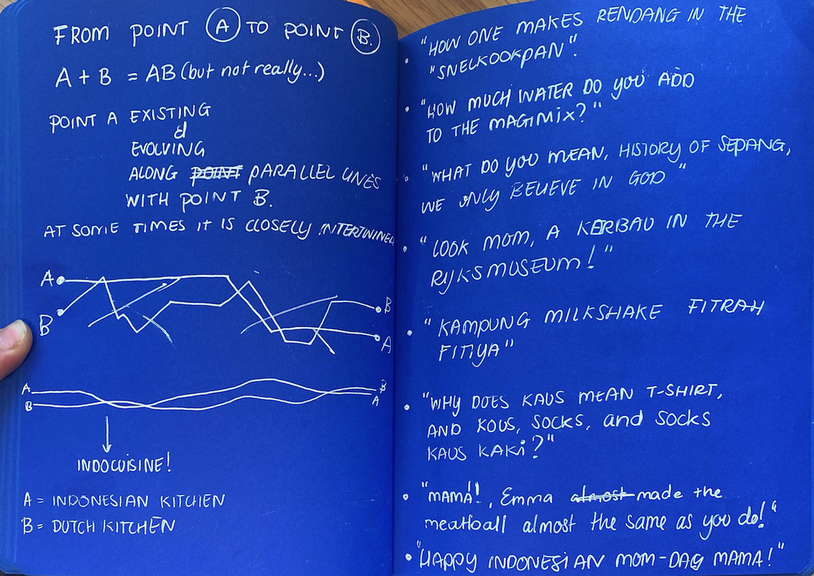 FROM POINT A TO POINT B.
A + B = AB (but not really...)
POINT A EXISTING
&
EVOLVING
ALONG POINT PARALLEL LINES
WITH POINT B.
AT SOME TIMES IT IS CLOSELY INTERTWINED
A
B
B
A
A
B
B
A
INDOCUISINE!
A = INDONESIAN KITCHEN
B = DUTCH KITCHEN
• "HOW ONE MAKES RENDANG IN THE
"SNELKOOKPAN".
• "HOW MUCH WATER DO YOU ADD
TO THE MAGIMIX?"
• "WHAT DO YOU MEAN, HISTORY OF SEPANG,
WE ONLY BELIEVE IN GOD"
• "LOOK MOM, A KERBAU IN THE
RIJKSMUSEUM!"
• "KAMPUNG MILKSHAKE FITRAH
FITIYA"
• "WHY DOES KAUS MEAN T-SHIRT,
AND KOUS, SOCKS, and SOCKS
KAUS KAKI?"
• "MAMA!, Emma almost made the
meatball almost the same as you do!"
• "HAPPY INDONESIAN MOM-DAG MAMA!"